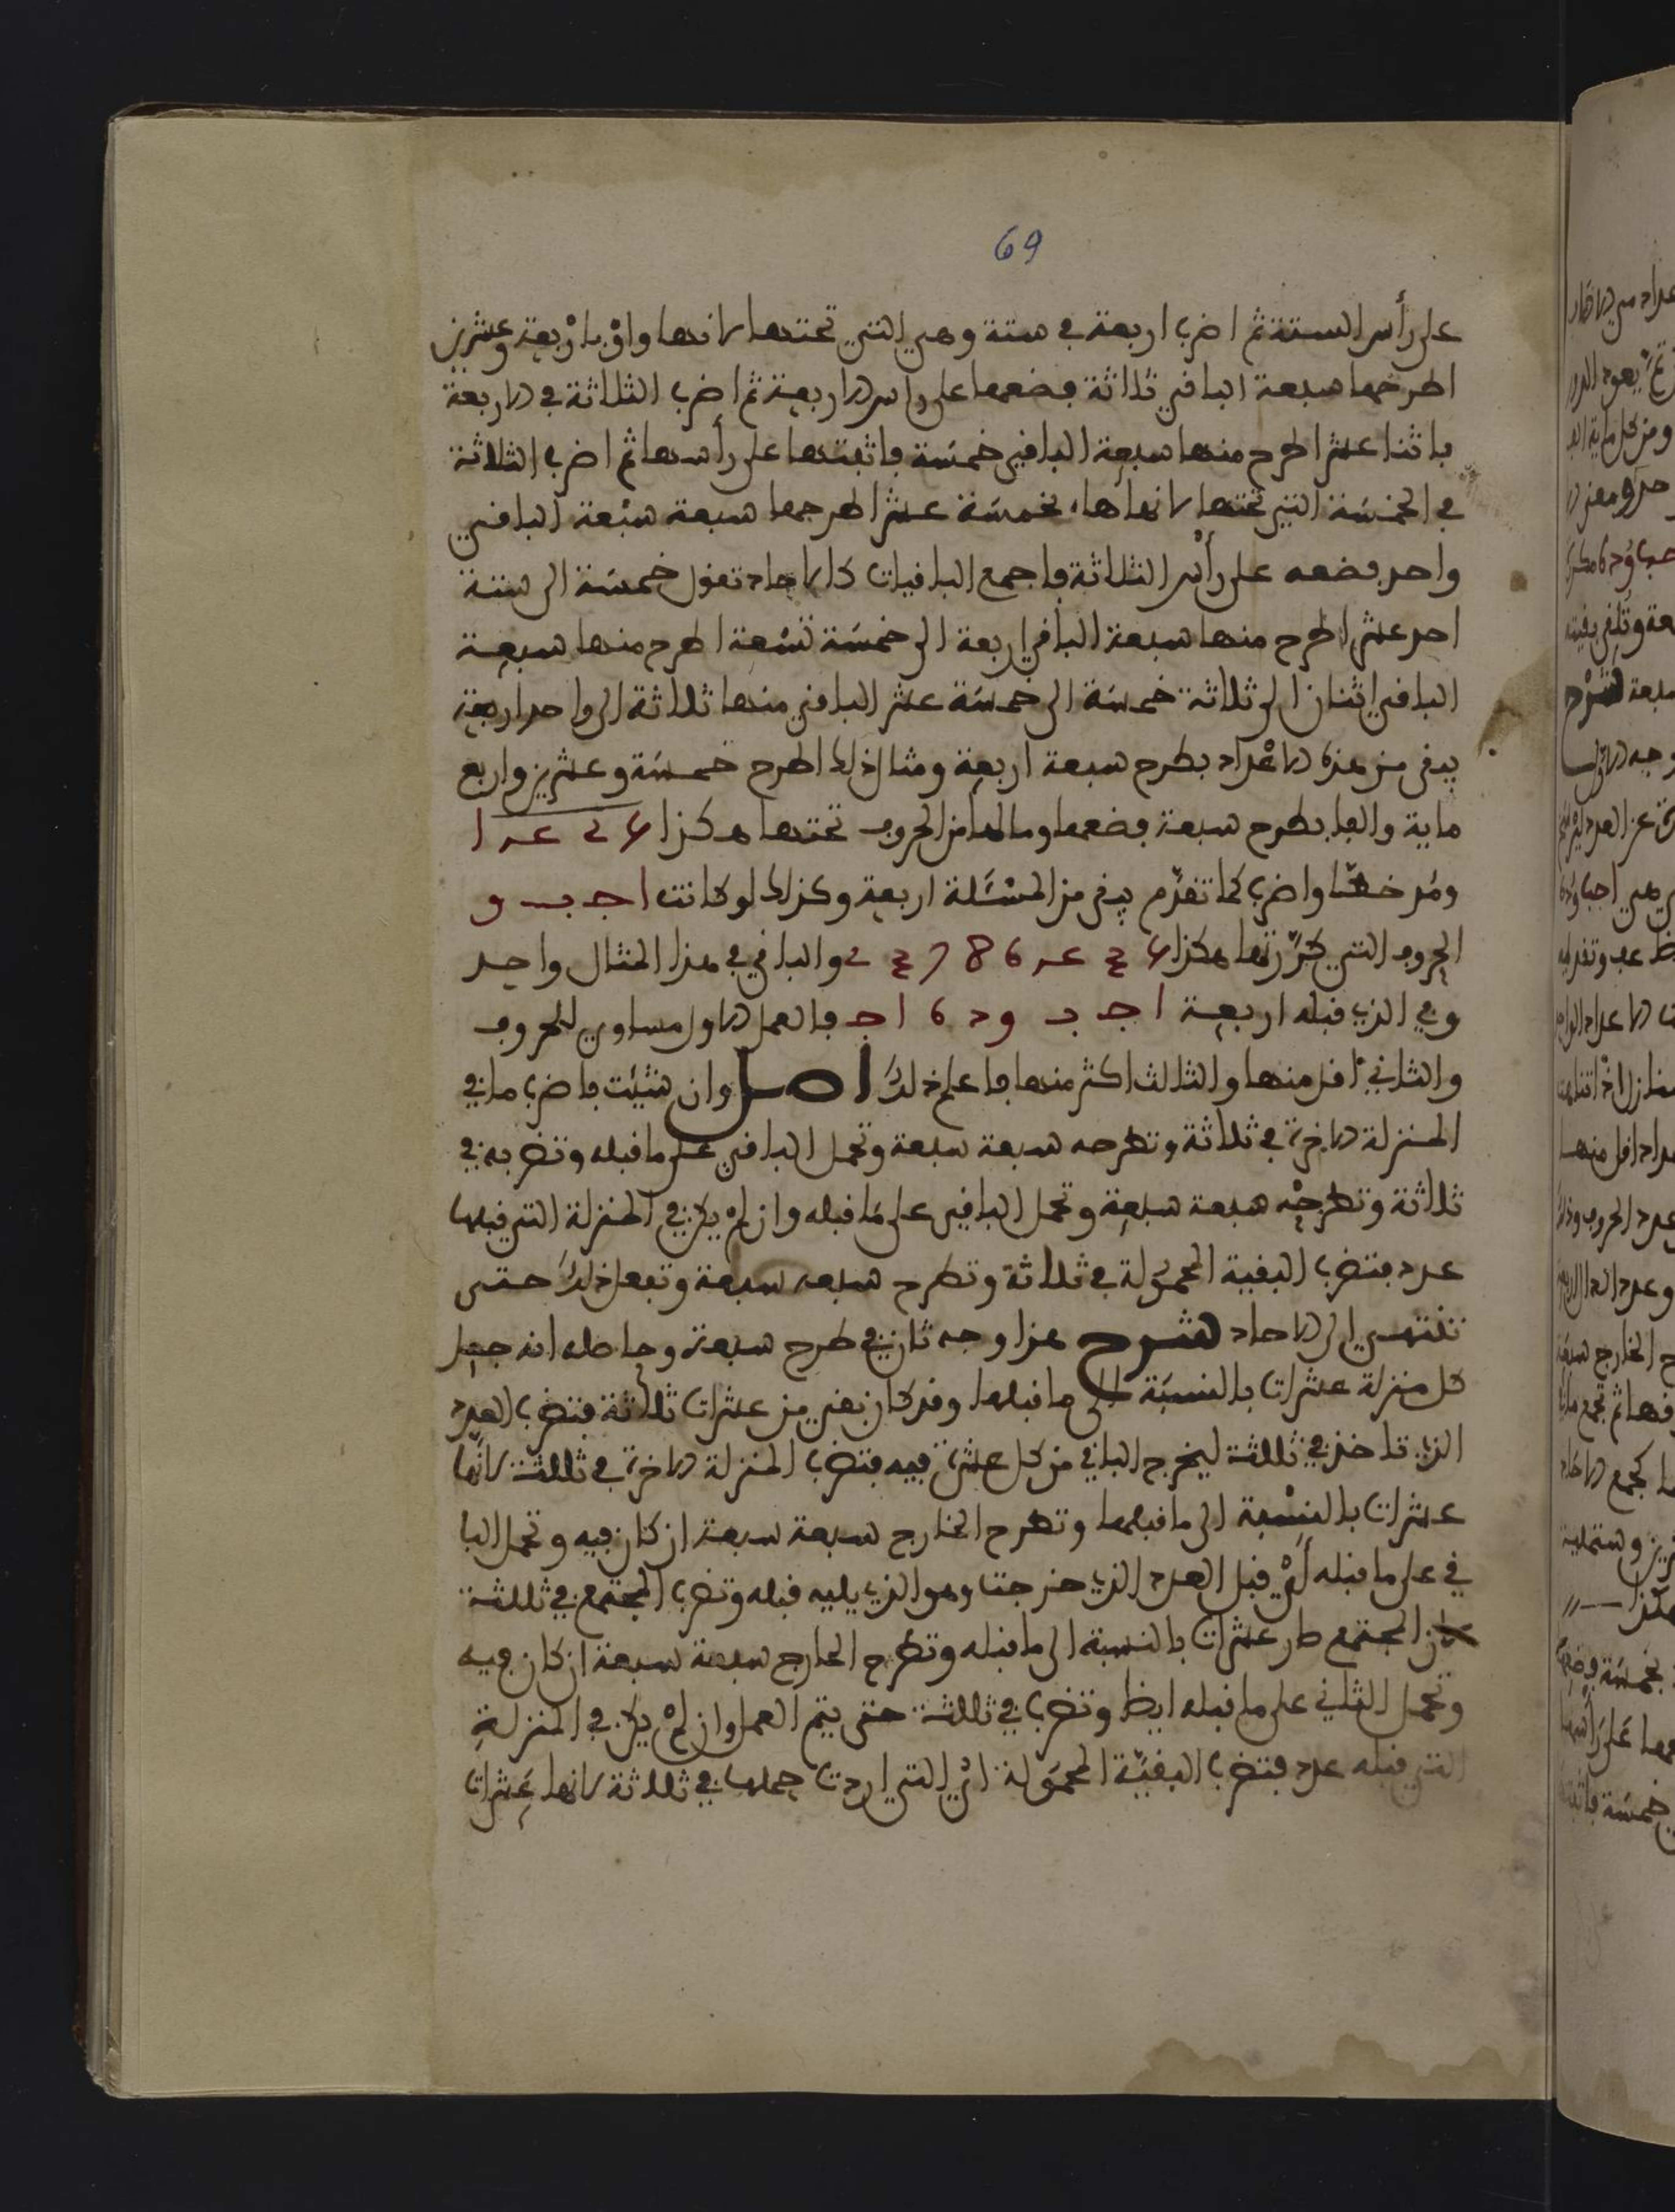 69
على رأس الستة ثم اضرب اربعة في ستة وهي التي تحتها لانها واو باربعة وعشرين
اطرحها سبعة الباقي ثلاثة فضعها على راس الاربعة ثم اضرب الثلاثة في الاربعة
باثنا عشر اطرح منها سبعة الباقي خمسة فاثبتها على رأسها ثم اضرب الثلاثة
في الخمسة التي تحتها لانها هاء بخمسة عشر اطرحها سبعة سبعة الباقي
واحد فضعه على رأس الثلاثة فاجمع الباقيات كالاحاد تقول خمسة الى ستة
احد عشر اطرح منها سبعة الباقي اربعة الى خمسة تسعة اطرح منها سبعة
الباقي اثنان الى ثلاثة خمسة الى خمسة عشر الباقي منها ثلاثة الى واحد اربعة
يبقى من هذه الاعداد بطرح سبعة اربعة ومثال ذلك اطرح خمسة وعشرين واربع
ماية والفا بطرح سبعة فضعها ومالها من الحروف تحتها هكذا
كما تقدم يبقى من المسئلة اربعة وكذلك لو كانت ا ج ب و
الحروف التي كررتها هكذا والباقي في هذا المثال واحد
وفي الذي قبله اربعة ا ج ب و د ه ا ج فالعمل الاول مساوي للحروف
والثاني اقل منها والثالث اكثر منها فاعلم ذلك اصل وان شئت فاضرب ما في
المنزلة الاخرة في ثلاثة وتطرحه سبعة سبعة وتحمل الباقي على ما قبله وتضربه في
ثلاثة وتطرحه سبعة سبعة وتحمل الباقي على ما قبله وان لم يكن في المنزلة التي قبلها
عدد فتضرب البقية المحمولة في ثلاثة وتطرح سبعة سبعة وتفعل ذلك حتى
تنتهي الى الاحاد شرح هذا وجه ثان في طرح سبعة وحاصله انه جعل
كل منزلة عشرات بالنسبة الى ما قبلها وقد كان بقي من عشرات ثلاثة فتضرب العدد
الذي تاخذ في ثلثة ليخرج الباقي من كل عشرة فيه فتضرب المنزلة الاخرة في ثلثة لانها
عشرات بالنسبة الى ما قبلها وتطرح الخارج سبعة سبعة ان كان فيه وتحمل البا
في على ما قبله أي قبل العدد الذي خرجت وهو الذي يليه قبله وتضرب المجتمع في ثلثة
لان المجتمع صار عشرات بالنسبة الى ما قبله وتطرح الخارج سبعة سبعة ان كان فيه
وتحمل الثاني على ما قبله ايظا وتضرب في ثلثة حتى يتم العمل وان لم يكن في المنزلة
التي قبله عدد فتضرب البقية المحمولة اي التي اردت حملها في ثلاثة لانها عشرات